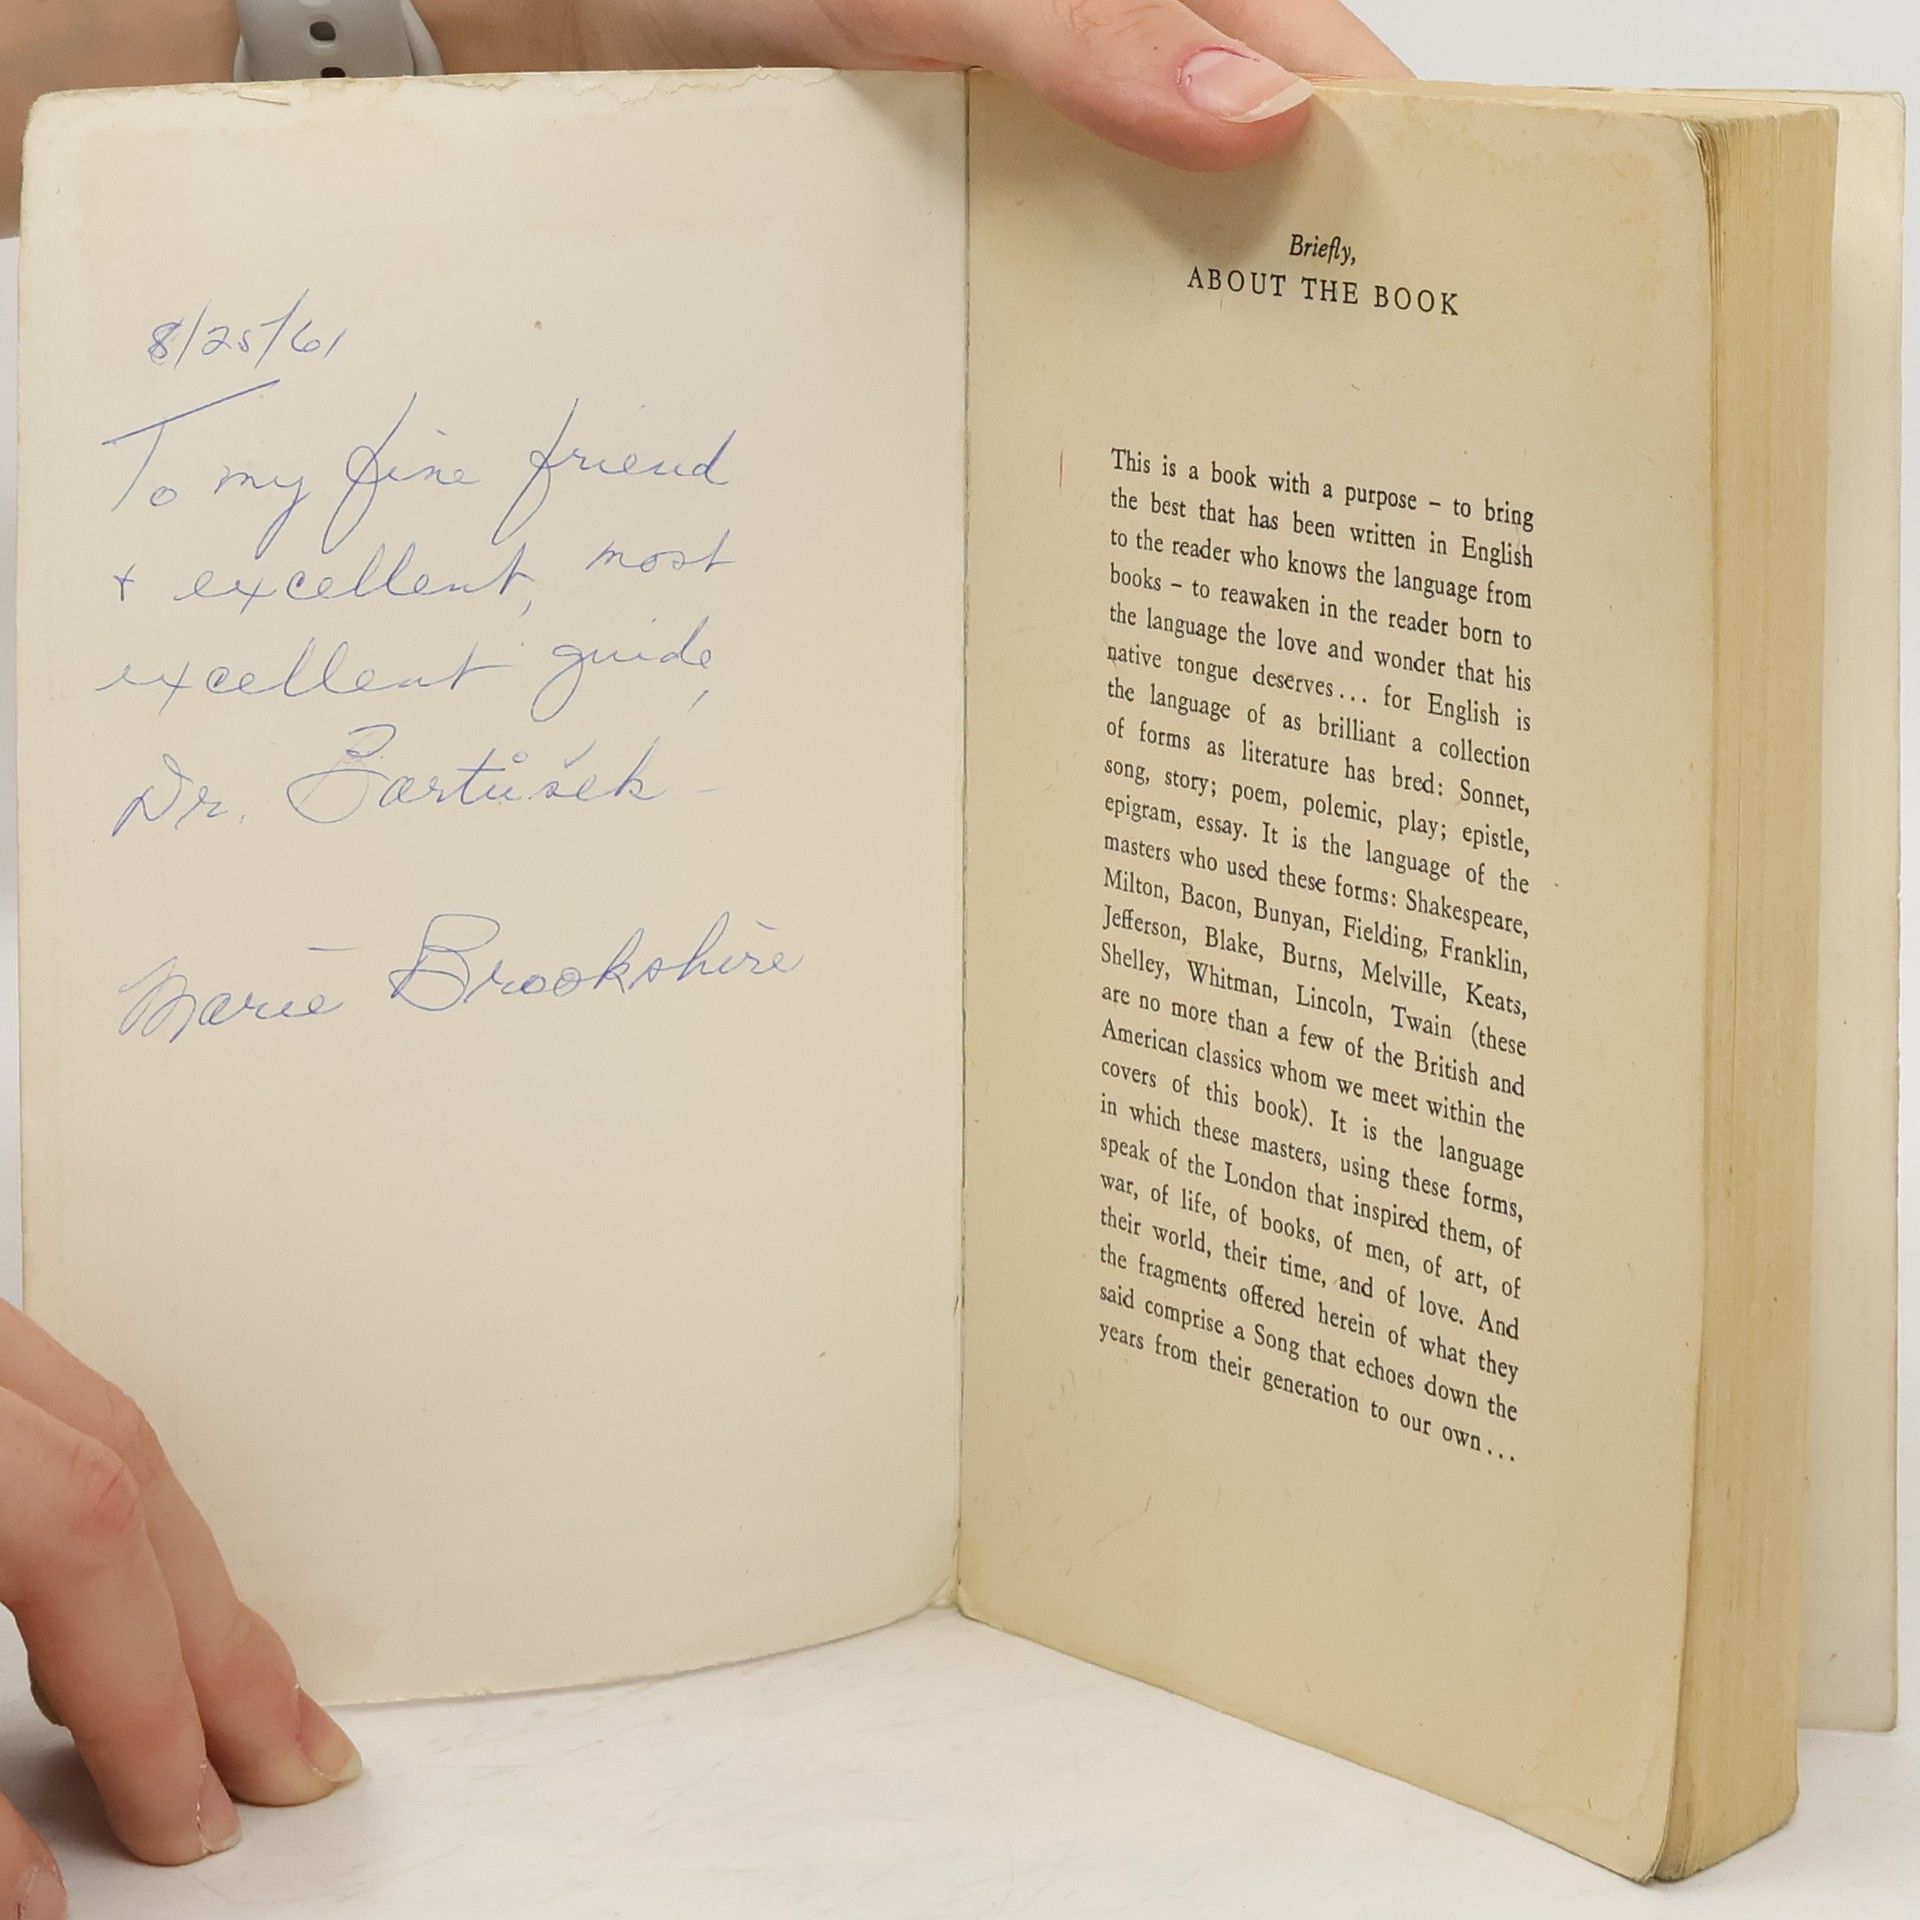 8/25/61
To my fine friend
+ excellent, most
excellent guide,
Dr. Bartůšek –
Marie Brookshire
Briefly,
ABOUT THE BOOK
This is a book with a purpose – to bring
the best that has been written in English
to the reader who knows the language from
books – to reawaken in the reader born to
the language the love and wonder that his
native tongue deserves... for English is
the language of as brilliant a collection
of forms as literature has bred: Sonnet,
song, story; poem, polemic, play; epistle,
epigram, essay. It is the language of the
masters who used these forms: Shakespeare,
Milton, Bacon, Bunyan, Fielding, Franklin,
Jefferson, Blake, Burns, Melville, Keats,
Shelley, Whitman, Lincoln, Twain (these
are no more than a few of the British and
American classics whom we meet within the
covers of this book). It is the language
in which these masters, using these forms,
speak of the London that inspired them, of
war, of life, of books, of men, of art, of
their world, their time, and of love. And
the fragments offered herein of what they
said comprise a Song that echoes down the
years from their generation to our own...